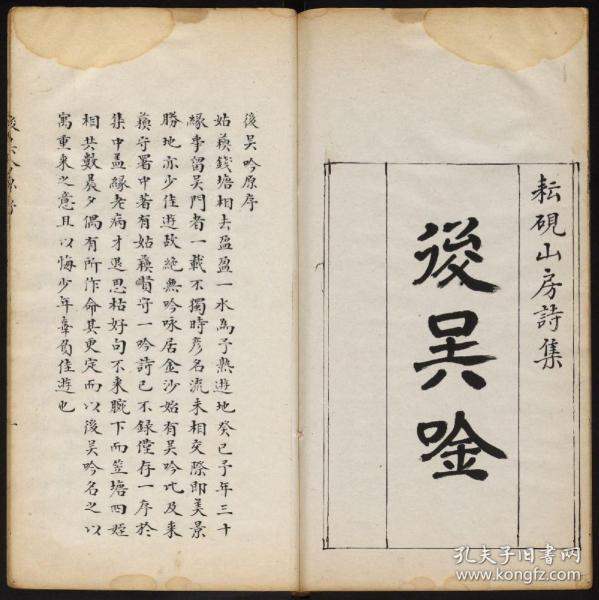 耘硯山房詩集
後吴唫
後吴吟原序
姑蘓錢塘相去盈盈一水為予熟遊地癸巳予年三十
緣事留吴門者一載不獨時彦名流未相交際即美景
勝地亦少佳遊故絶無吟咏居金沙始有吴吟比及来
蘓守署中著有姑蘓賢守一吟詩已不録僅存一序於
集中盖緣老病才退思枯好句不来腕下而笠塘四姪
相共數晨夕偶有所作命其更定而以後吴吟名之以
寓重来之意且以悔少年辜負佳遊也
孔夫子旧书网
www.kongfz.com